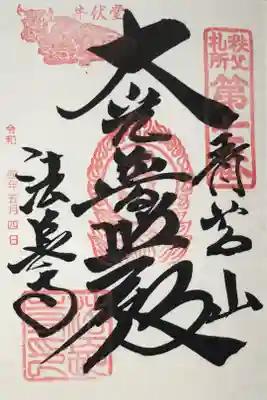 秩父札所第七番
青苔山
牛伏堂
大光普照殿
法長寺
令和
年五月四日